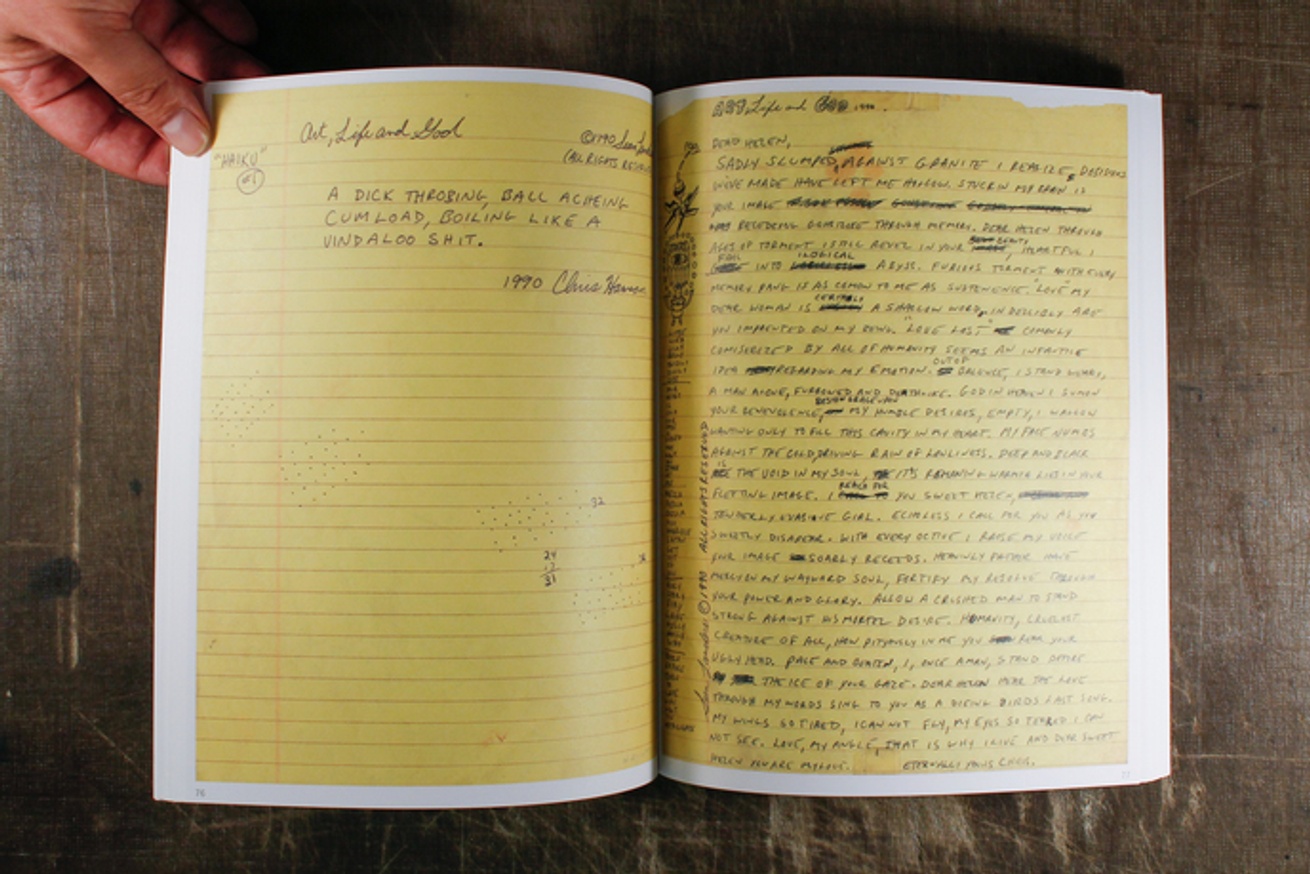 Art, Life and God
©1990 Sean
(ALL RIGHTS RESER
"HAIKU"
#1
A DICK THROBING, BALL ACHEING
CUM LOAD, BOILING LIKE A
VINDALOO SHIT.
1990 Chris
32
24
31
76
Life and 1990.
DEAD HELEN,
SADLY SLUMPED, AGAINST GRANITE I REALIZE, DECISIONS
WE'VE MADE HAVE LEFT ME HALLOW. STUCK IN MY BRAIN IS
YOUR IMAGE
RECEEDING THROUGH MEMORY. DEAR HELEN THROUGH
AGES OF TORMENT I STILL REVEL IN YOUR BEAUTY, HEARTFUL I
FALL INTO ILOGICAL ABYSS. FURIOUS TORMENT WITH EVERY
MEMORY PANG IS AS COMON TO ME AS SUSTENENCE. "LOVE" MY
DEAR WOMAN IS CERTAINLY A SHALLOW WORD, INDELIBLY ARE
YOU IMPRINTED ON MY BEING. "LOVE LOST" COMONLY
COMISERIZED BY ALL OF HUMANITY SEEMS AN INFANTILE
IDEA REGARDING MY EMOTION. OUT OF BALENCE, I STAND WEARY,
A MAN ALONE, FURROWED AND DEATHLIKE. GOD IN HEAVEN I SUMON
YOUR BENEVOLENCE, MY HUMBLE DESIRES, EMPTY, I WALLOW
WANTING ONLY TO FILL THIS CAVITY IN MY HEART. MY FACE NUMBS
AGAINST THE COLD, DRIVING RAIN OF LONLINESS. DEEP AND BLACK
IS THE VOID IN MY SOUL, IT'S REMAINING WARMTH LIES IN YOUR
FLEETING IMAGE. I REACH FOR YOU SWEET HELEN,
TENDERLY EVASIVE GIRL. ECHOLESS I CALL FOR YOU AS YOU
SWEETLY DISAPEAR. WITH EVERY OCTIVE I RAISE MY VOICE
YOUR IMAGE SOARLY RECEEDS. HEAVINLY FATHER HAVE
MERCY ON MY WAYWARD SOUL, FORTIFY MY RESOLVE THROUGH
YOUR POWER AND GLORY. ALLOW A CRUSHED MAN TO STAND
STRONG AGAINST HIS MORTEL DESIRE. HUMANITY, CRUELEST
CREATURE OF ALL, HOW PITYOUSLY IN ME YOU REAR YOUR
UGLY HEAD. PALE AND BEATEN, I, ONCE A MAN, STAND BEFORE
THE ICE OF YOUR GAZE. DEAR HELEN HEAR THE LOVE
THROUGH MY WORDS SING TO YOU AS A DIEING BIRDS LAST SONG.
MY WINGS SO TIRED, I CAN NOT FLY, MY EYES SO TEARED I CAN
NOT SEE. LOVE, MY ANGLE, THAT IS WHY I LIVE AND DEAR SWEET
HELEN YOU ARE MY LOVE. ETERNALLY YOURS CHRIS.
©1990 ALL RIGHTS RESERVED
77